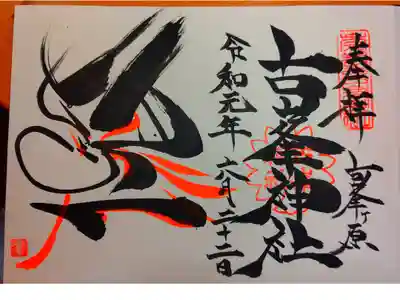 奉拝
古峯ヶ原
古峯神社
令和元年六月二十二日